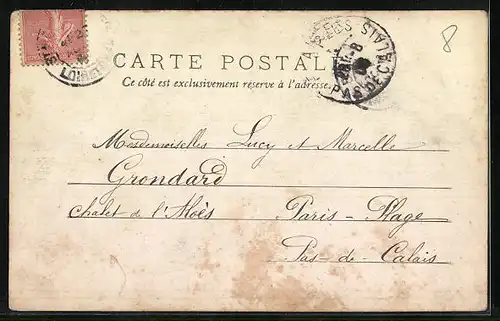 LOIRET
PAS DE CALAIS
8
CARTE POSTALE
Ce côté est exclusivement réservé à l'adresse.
Mesdemoiselles Lucy et Marcelle
Grondard
Chalet de l'Aloès Paris-Plage
Pas-de-Calais